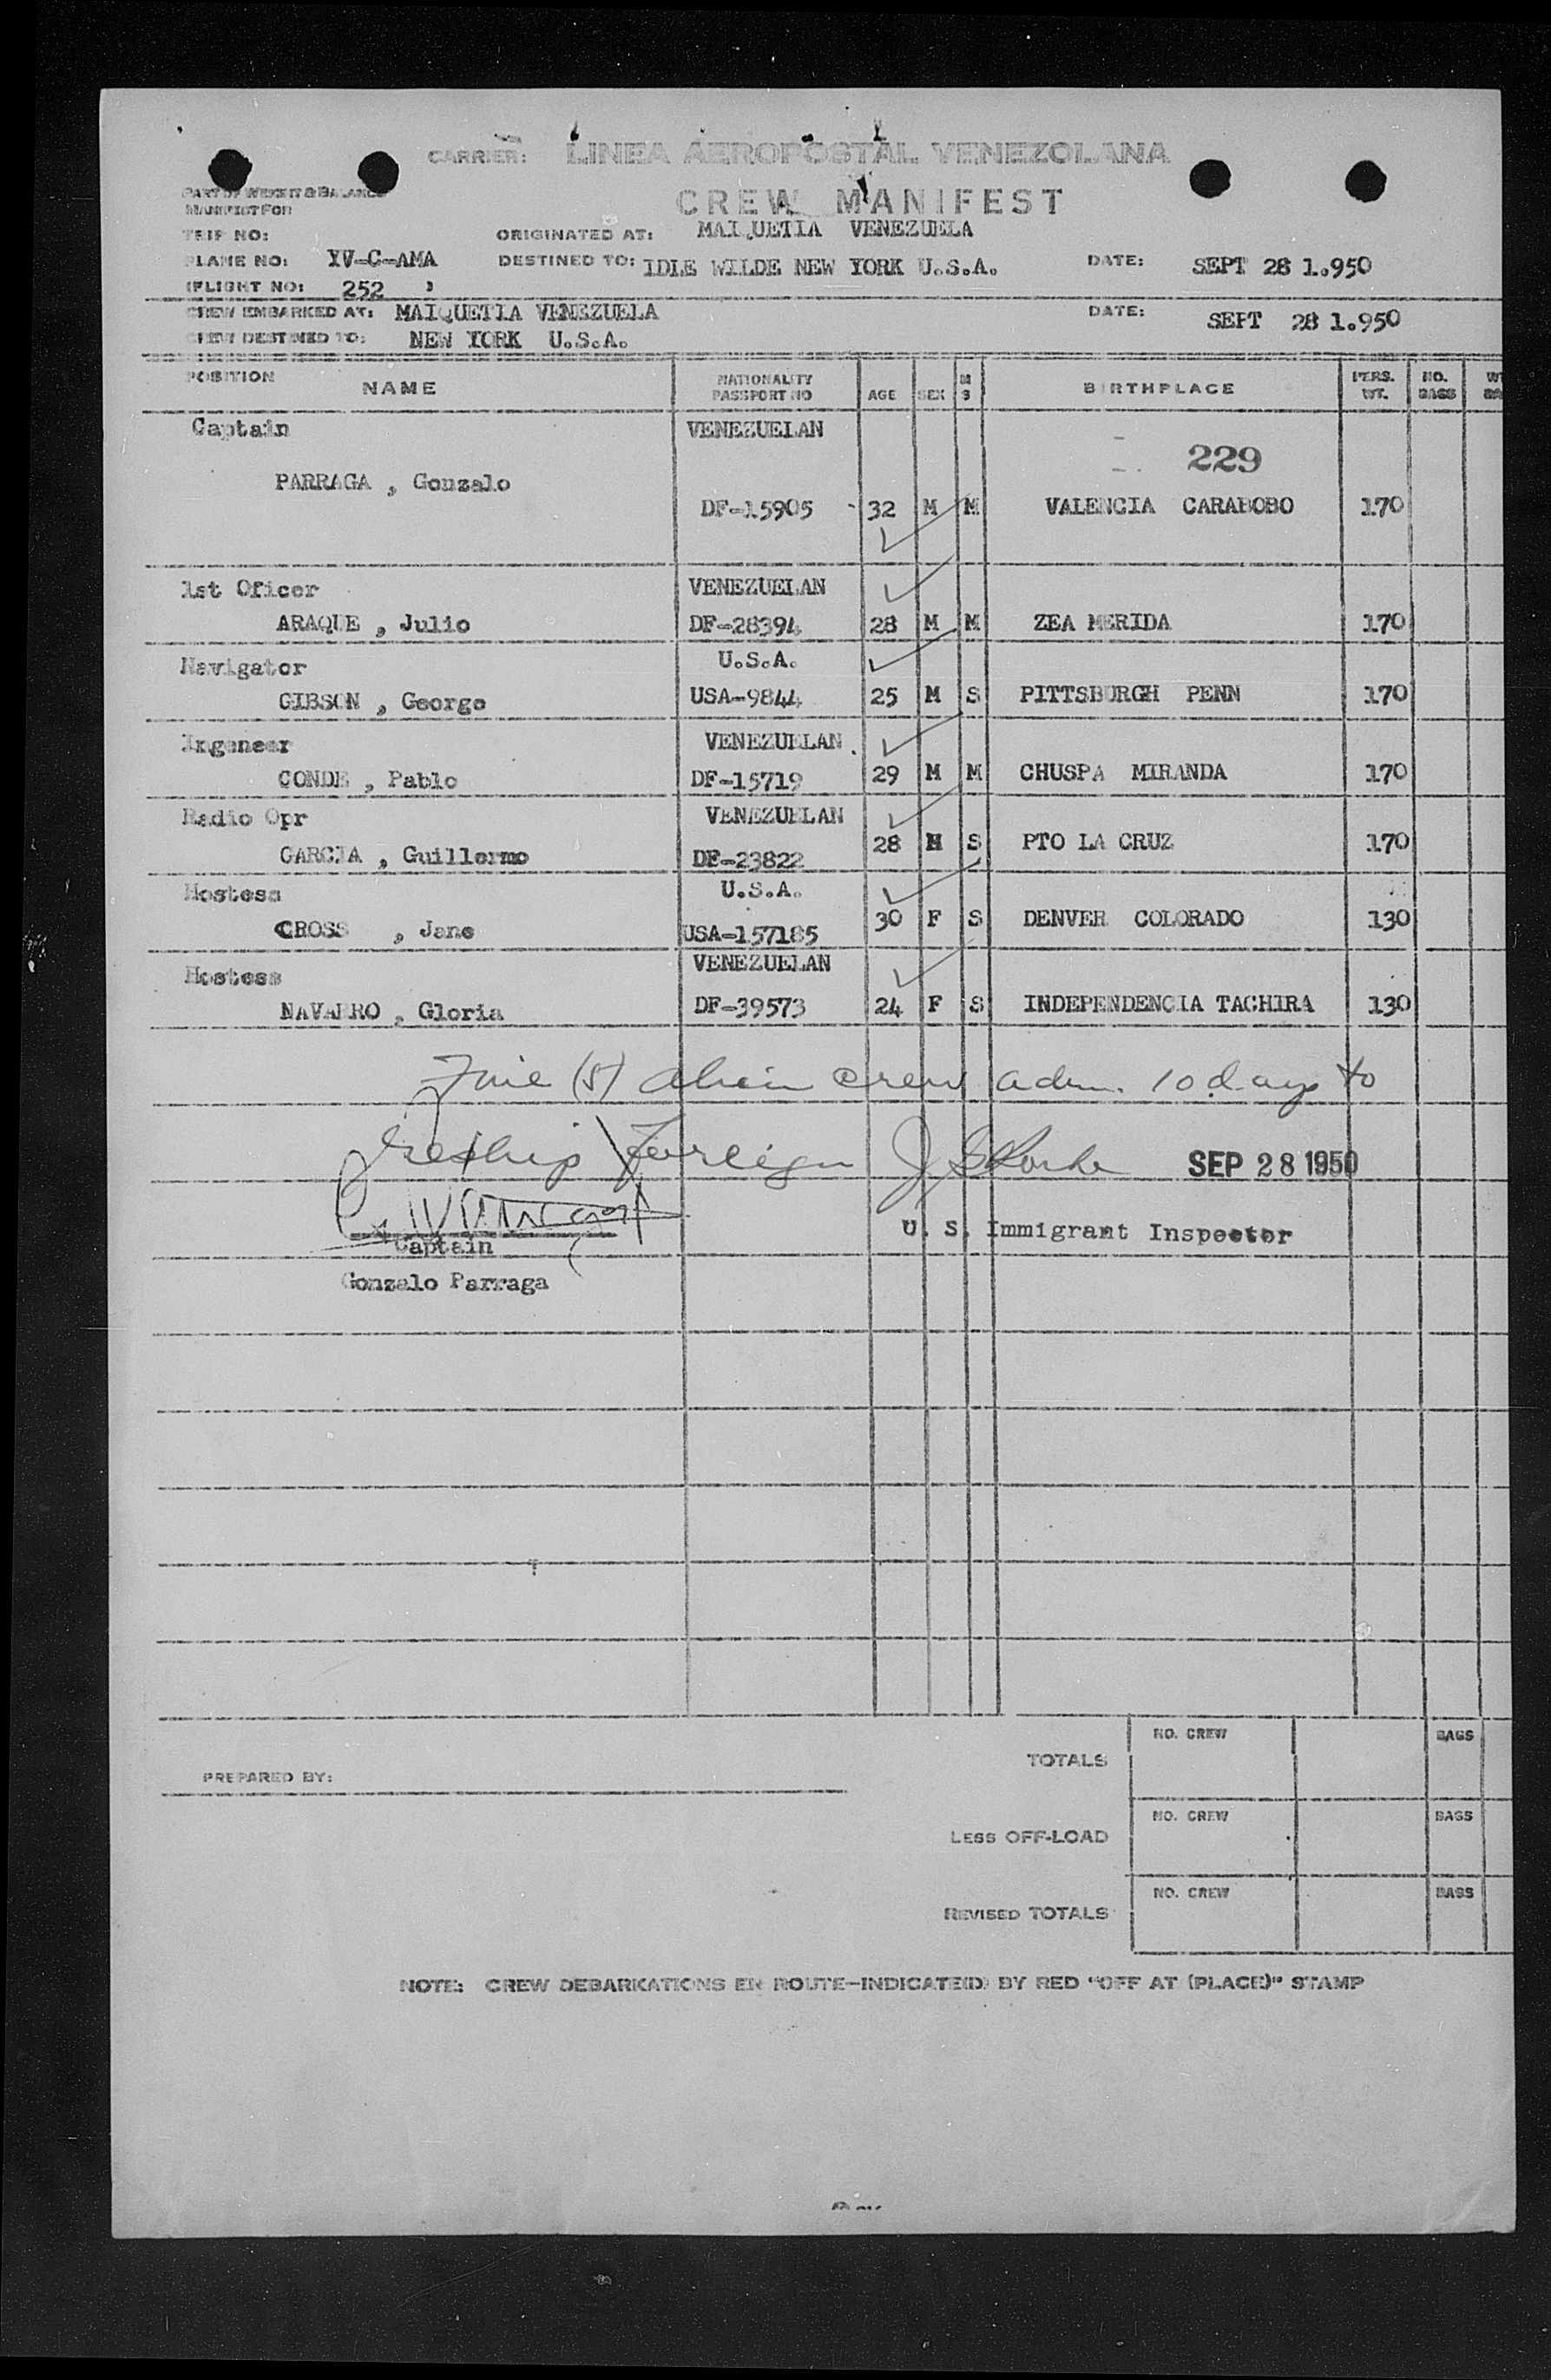 CARRIER: LINEA AEROPOSTAL VENEZOLANA
CREW MANIFEST
PART OF WEIGHT & BALANCE
MANIFEST FOR
TRIP NO: ORIGINATED AT: MAIQUETIA VENEZUELA
PLANE NO: YV-C-AMA DESTINED TO: IDLE WILDE NEW YORK U.S.A. DATE: SEPT 28 1.950
(FLIGHT NO: 252 )
CREW EMBARKED AT: MAIQUETIA VENEZUELA DATE: SEPT 28 1.950
CREW DESTINED TO: NEW YORK U.S.A.
POSITION NAME NATIONALITY PASSPORT NO AGE SEX M S BIRTHPLACE PERS. WT. NO. BAGS
Captain VENEZUELAN
229
PARRAGA , Gonzalo
DF-15905 32 M M VALENCIA CARABOBO 170
1st Oficer VENEZUELAN
ARAQUE , Julio DF-28394 28 M M ZEA MERIDA 170
Navigator U.S.A.
GIBSON , George USA-9844 25 M S PITTSBURGH PENN 170
Ingeneer VENEZUELAN
CONDE , Pablo DF-15719 29 M M CHUSPA MIRANDA 170
Radio Opr VENEZUELAN
GARCIA , Guillermo DF-23822 28 M S PTO LA CRUZ 170
Hostess U.S.A.
CROSS , Jane USA-157185 30 F S DENVER COLORADO 130
Hostess VENEZUELAN
NAVARRO , Gloria DF-39573 24 F S INDEPENDENCIA TACHIRA 130
Five (5) alien crew adm. 10 days to
reship foreign SEP 28 1950
U. S. Immigrant Inspector
Captain
Gonzalo Parraga
NO. CREW BAGS
TOTALS
PREPARED BY:
NO. CREW BAGS
LESS OFF-LOAD
NO. CREW BAGS
REVISED TOTALS
NOTE: CREW DEBARKATIONS EN ROUTE-INDICATE(D) BY RED "OFF AT (PLACE)" STAMP